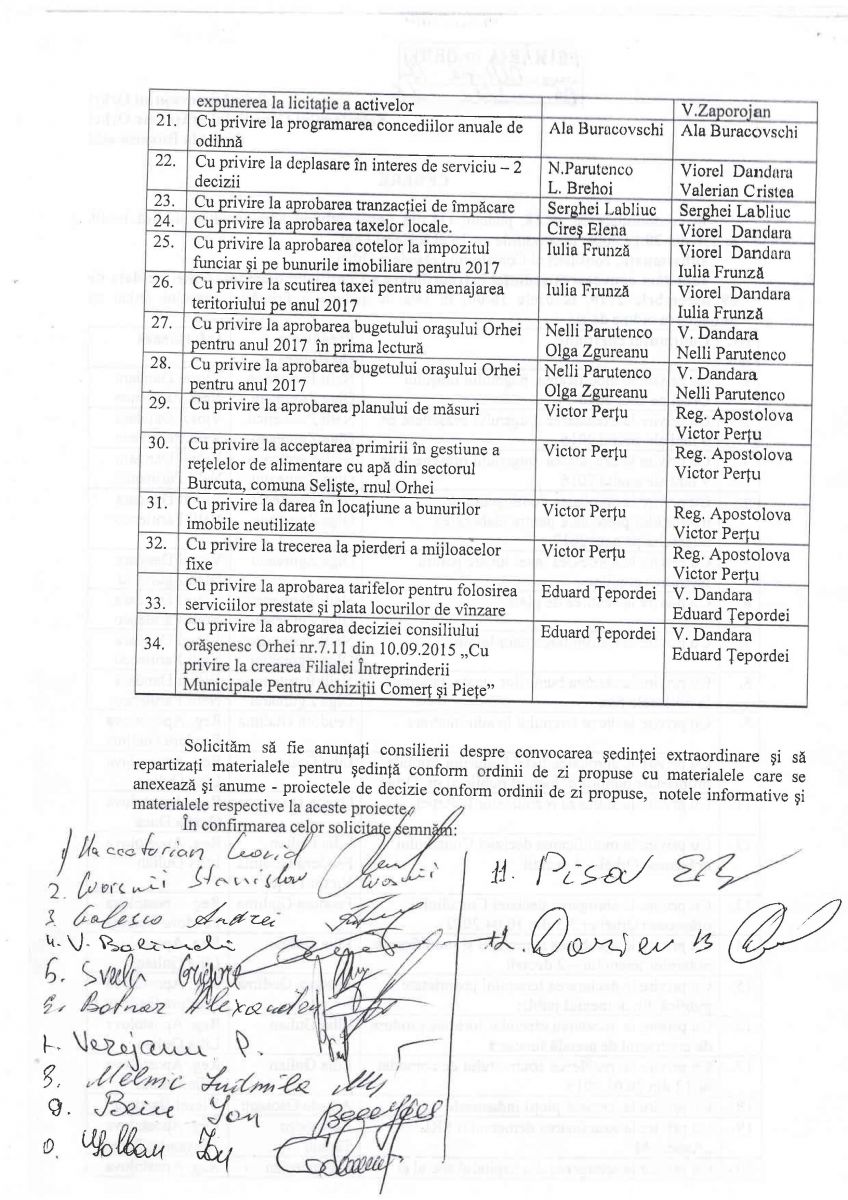 expunerea la licitație a activelor V.Zaporojan
21. Cu privire la programarea concediilor anuale de Ala Buracovschi Ala Buracovschi
odihnă
22. Cu privire la deplasare în interes de serviciu – 2 N.Parutenco Viorel Dandara
decizii L. Brehoi Valerian Cristea
23. Cu privire la aprobarea tranzacției de împăcare Serghei Labliuc Serghei Labliuc
24. Cu privire la aprobarea taxelor locale. Cireș Elena Viorel Dandara
25. Cu privire la aprobarea cotelor la impozitul Iulia Frunză Viorel Dandara
funciar și pe bunurile imobiliare pentru 2017 Iulia Frunză
26. Cu privire la scutirea taxei pentru amenajarea Iulia Frunză Viorel Dandara
teritoriului pe anul 2017 Iulia Frunză
27. Cu privire la aprobarea bugetului orașului Orhei Nelli Parutenco V. Dandara
pentru anul 2017 în prima lectură Olga Zgureanu Nelli Parutenco
28. Cu privire la aprobarea bugetului orașului Orhei Nelli Parutenco V. Dandara
pentru anul 2017 Olga Zgureanu Nelli Parutenco
29. Cu privire la aprobarea planului de măsuri Victor Perțu Reg. Apostolova
Victor Perțu
30. Cu privire la acceptarea primirii în gestiune a Victor Perțu Reg. Apostolova
rețelelor de alimentare cu apă din sectorul Victor Perțu
Burcuta, comuna Seliște, rnul Orhei
31. Cu privire la darea în locațiune a bunurilor Victor Perțu Reg. Apostolova
imobile neutilizate Victor Perțu
32. Cu privire la trecerea la pierderi a mijloacelor Victor Perțu Reg. Apostolova
fixe Victor Perțu
Cu privire la aprobarea tarifelor pentru folosirea Eduard Țepordei V. Dandara
33. serviciilor prestate și plata locurilor de vînzare Eduard Țepordei
34. Cu privire la abrogarea deciziei consiliului Eduard Țepordei V. Dandara
orășenesc Orhei nr.7.11 din 10.09.2015 „Cu Eduard Țepordei
privire la crearea Filialei Întreprinderii
Municipale Pentru Achiziții Comerț și Piețe”
Solicităm să fie anunțați consilierii despre convocarea ședinței extraordinare și să
repartizați materialele pentru ședință conform ordinii de zi propuse cu materialele care se
anexează și anume - proiectele de decizie conform ordinii de zi propuse, notele informative și
materialele respective la aceste proiecte.
În confirmarea celor solicitate semnăm:
2. Stanislav
3. Andrei
4. V.
11. Pisov
5. Grigore
6. Botnar Alexandru
7. Verejanu P.
8. Melnic Ludmila
9. Ion
Ion